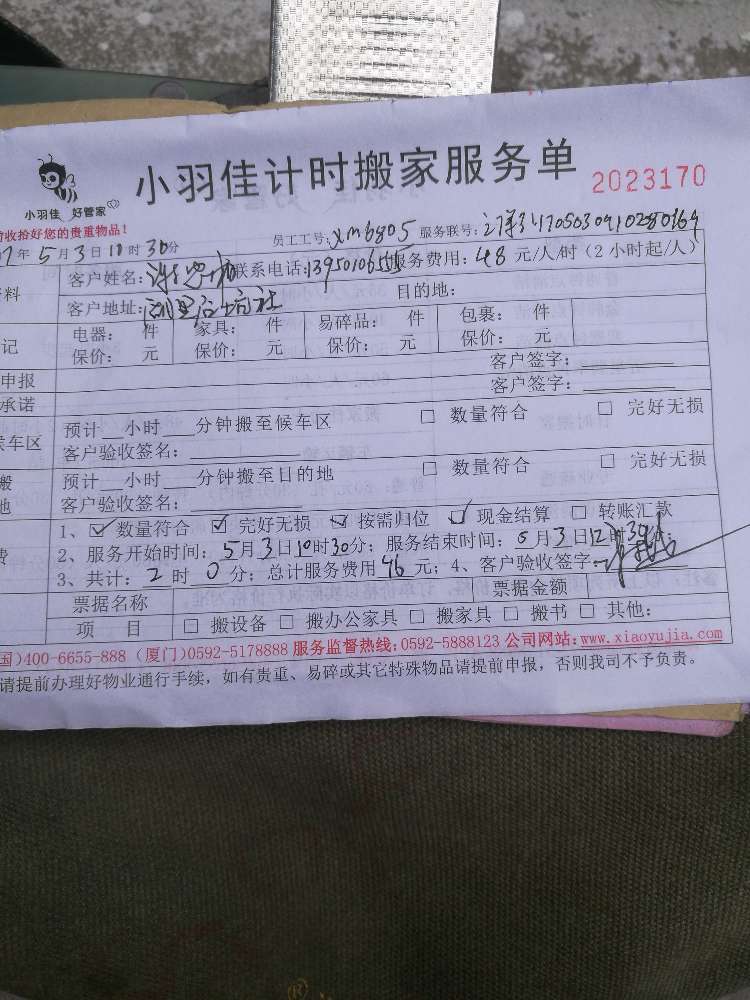 小羽佳计时搬家服务单
2023170
小羽佳 好管家
收拾好您的贵重物品!
年5月3日10时30分 员工工号:xm6805 服务联号:
料 客户姓名: 联系电话: 服务费用:48元/人/时(2小时起/人)
客户地址: 目的地:
记 电器: 件 家具: 件 易碎品: 件 包裹: 件
保价: 元 保价: 元 保价: 元 保价: 元
申报 客户签字:
承诺 客户签字:
预计 小时 分钟搬至候车区 □ 数量符合 □ 完好无损
候车区 客户验收签名:
搬 预计 小时 分钟搬至目的地 □ 数量符合 □ 完好无损
地 客户验收签名:
1、☑ 数量符合 ☑ 完好无损 ☑ 按需归位 ☑ 现金结算 □ 转账汇款
费 2、服务开始时间:5月3日10时30分;服务结束时间:5月3日12时30分;
3、共计:2时0分;总计服务费用 元;4、客户验收签字:
票据名称 票据金额
项 目 □ 搬设备 □ 搬办公家具 □ 搬家具 □ 搬书 □ 其他:
国)400-6655-888 (厦门)0592-5178888 服务监督热线:0592-5888123 公司网站:www.xiaoyujia.com
请提前办理好物业通行手续,如有贵重、易碎或其它特殊物品请提前申报,否则我司不予负责。